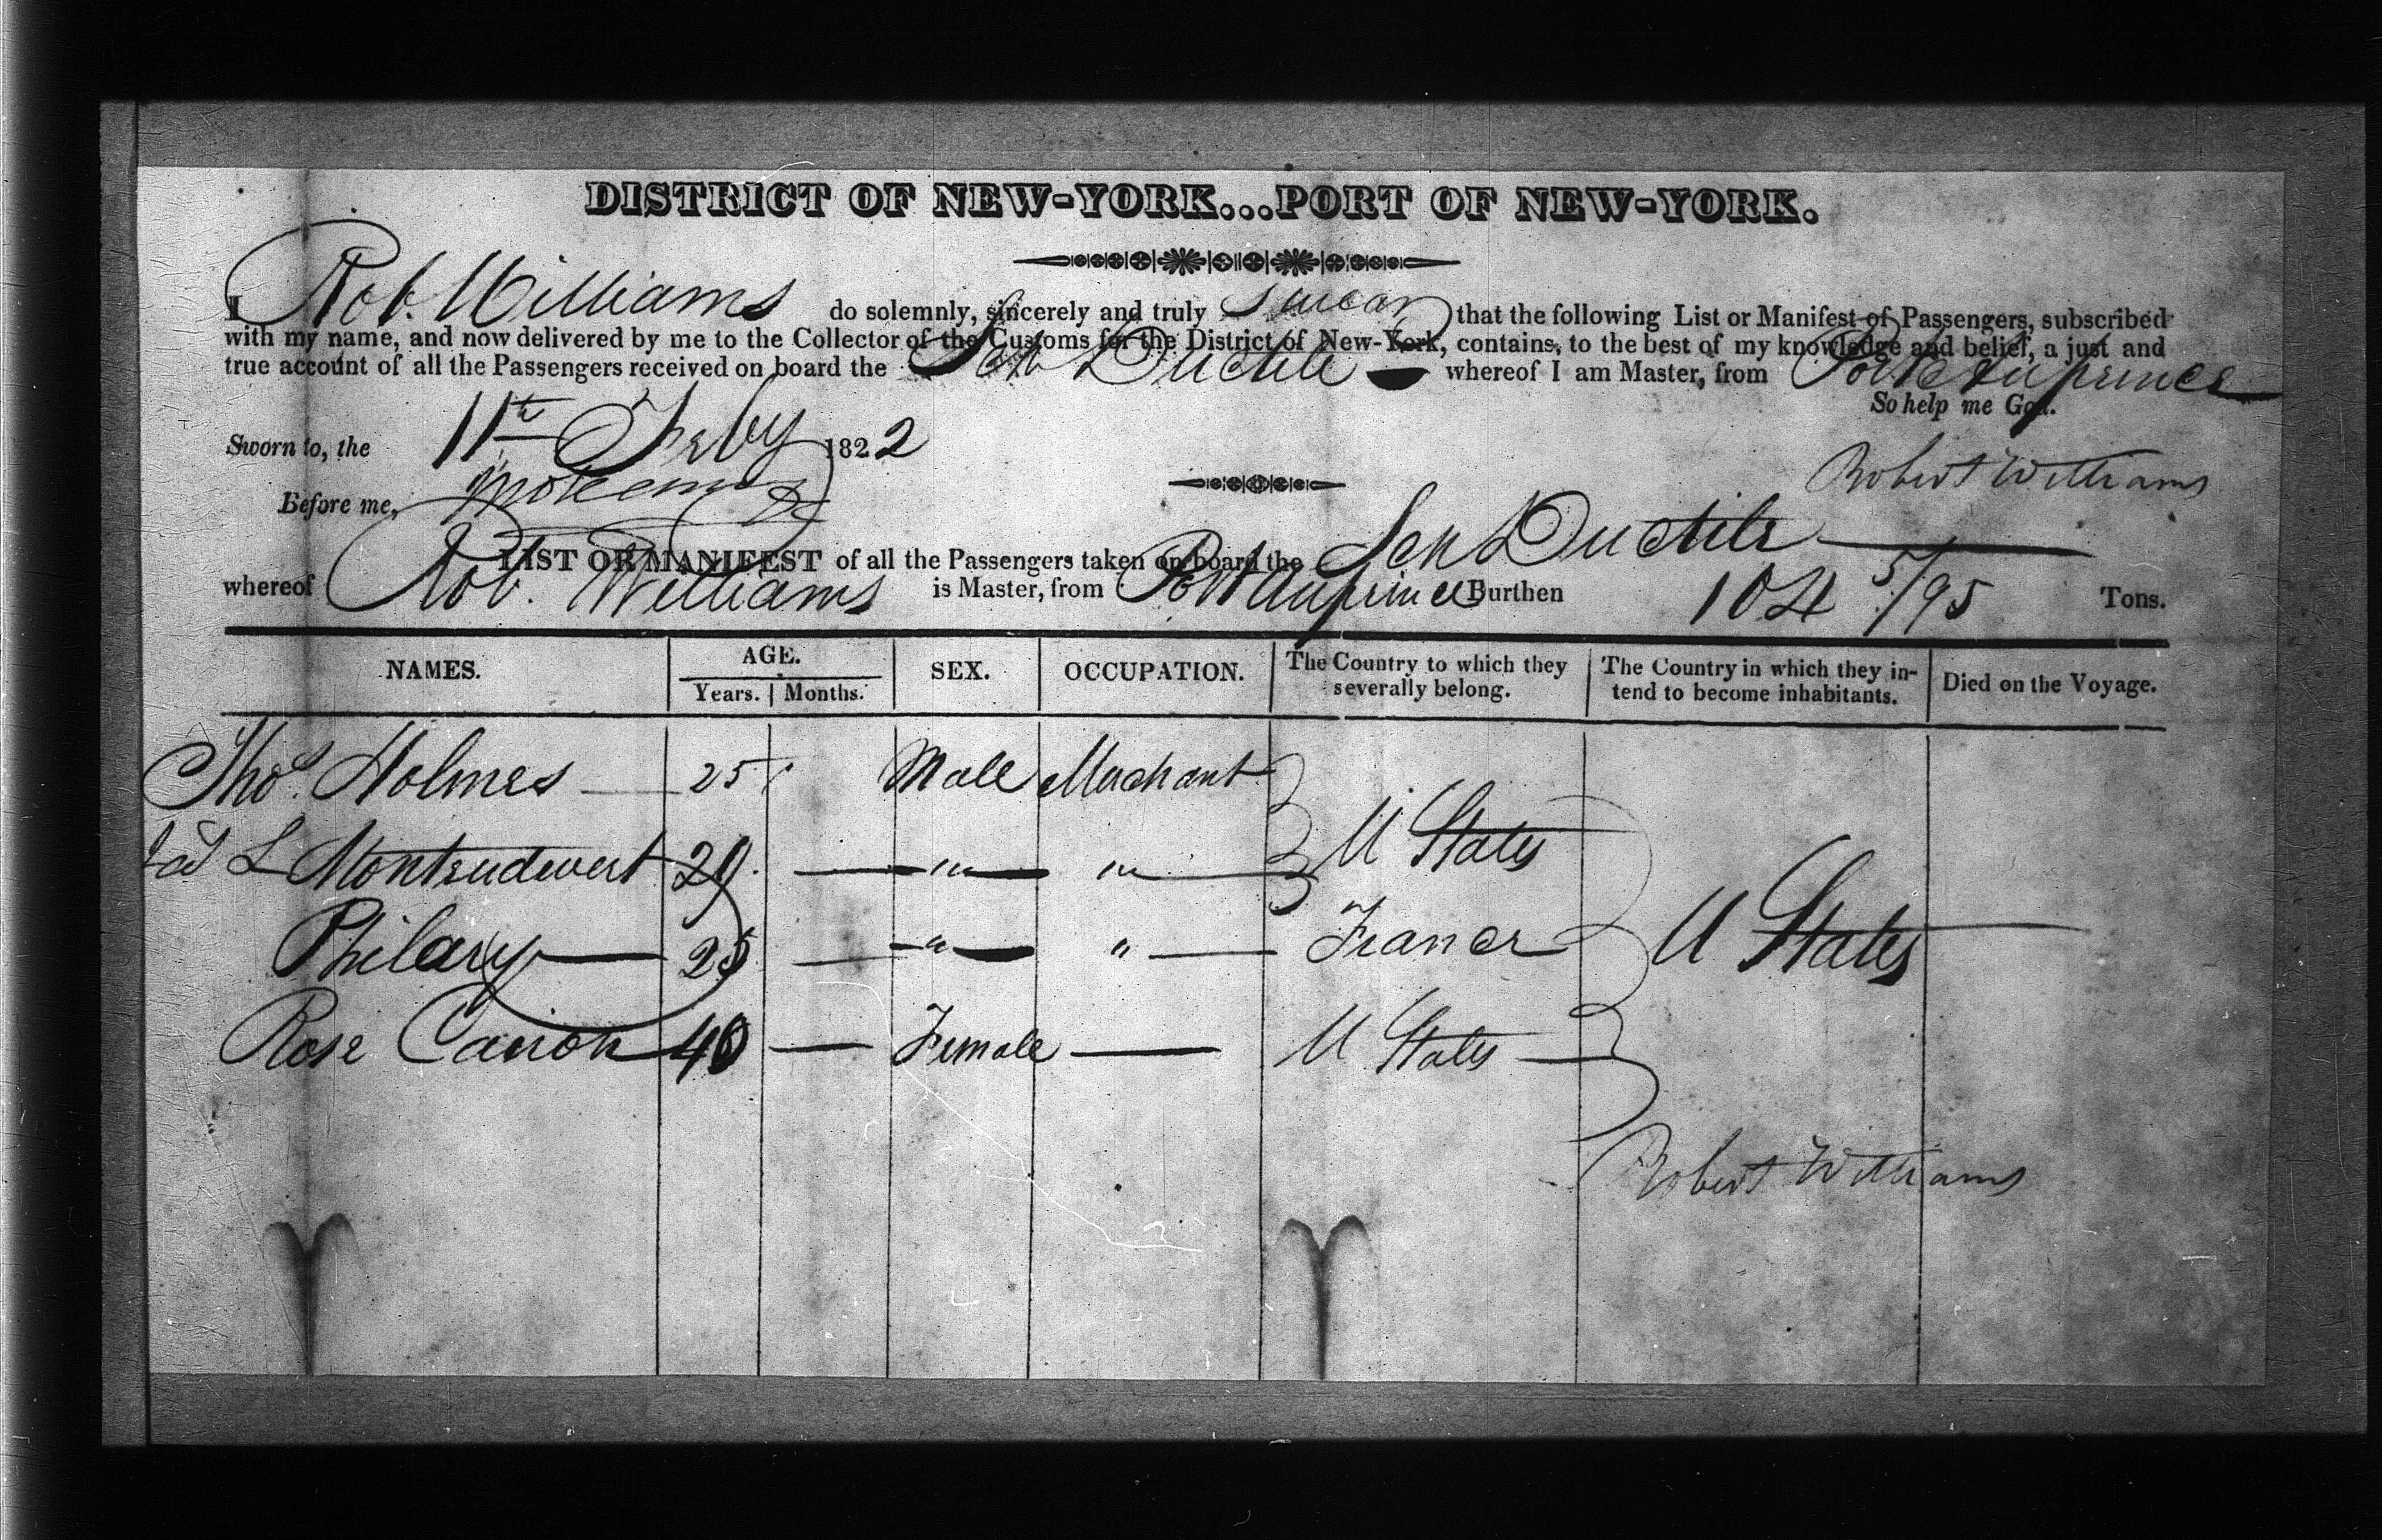 DISTRICT OF NEW-YORK...PORT OF NEW-YORK.
I Rob. Williams do solemnly, sincerely and truly Swear that the following List or Manifest of Passengers, subscribed
with my name, and now delivered by me to the Collector of the Customs for the District of New-York, contains, to the best of my knowledge and belief, a just and
true account of all the Passengers received on board the Sch Ductile whereof I am Master, from Port au prince
So help me God.
Sworn to, the 11th Feby 1822
Robert Williams
Before me,
LIST OR MANIFEST of all the Passengers taken on board the Sch Ductile
whereof Rob. Williams is Master, from Port au prince Burthen 104 5/95 Tons.
NAMES. AGE. SEX. OCCUPATION. The Country to which they severally belong. The Country in which they intend to become inhabitants. Died on the Voyage.
Years. Months.
Thos. Holmes 25 Male Merchant
L 29 " " U States
Philary 25 " " France U States
Rose 40 Female U States
Robert Williams